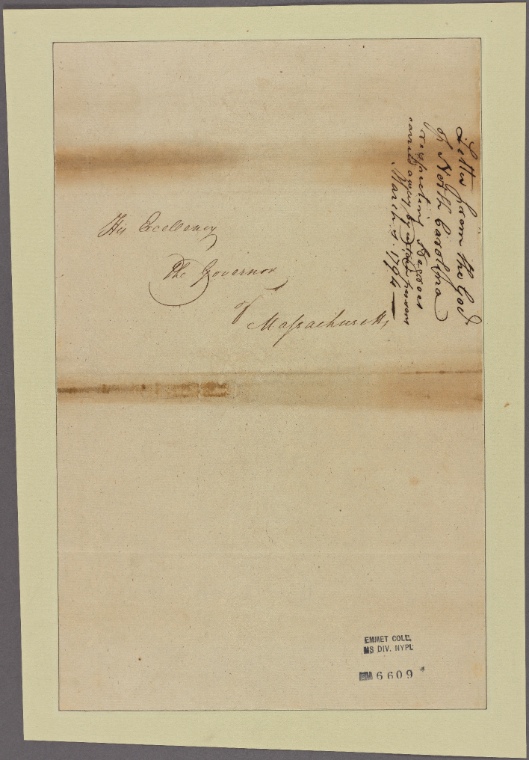 His Excellency
The Governor
of
Massachusetts
Letter from the Gov.
of North Carolina
respecting Negroes
carried away by
March 4. 1794
EMMET COLL.
MS DIV. NYPL
6609